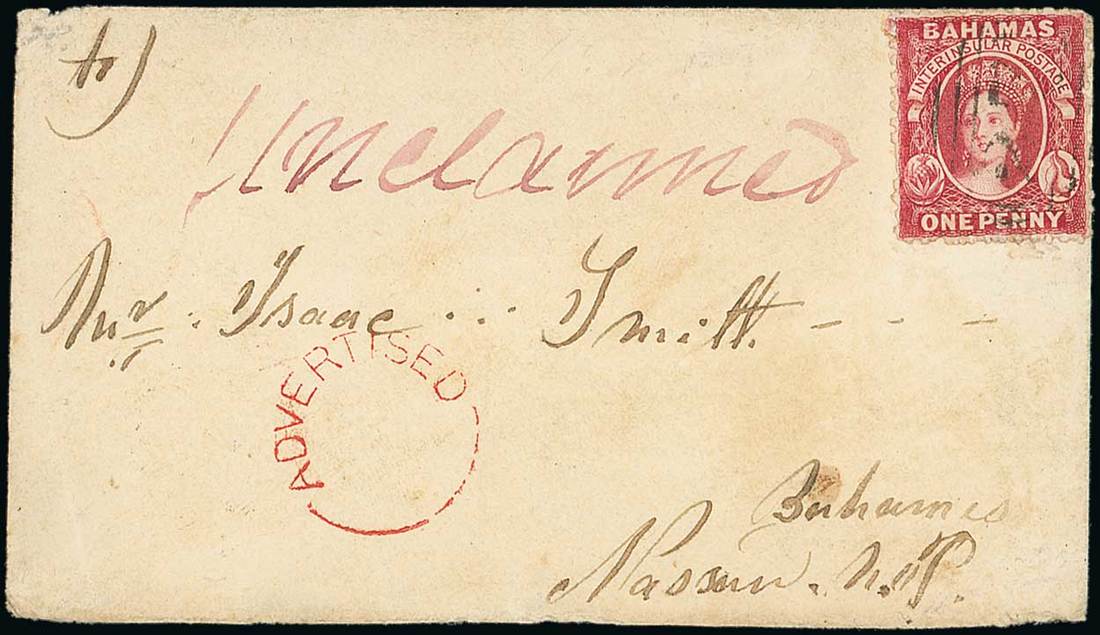 to)
BAHAMAS
INTERINSULAR POSTAGE
ONE PENNY
Unclaimed
Mr. Isaac ... Smith. - - -
ADVERTISED
Bahamas
Nassau. N.P.